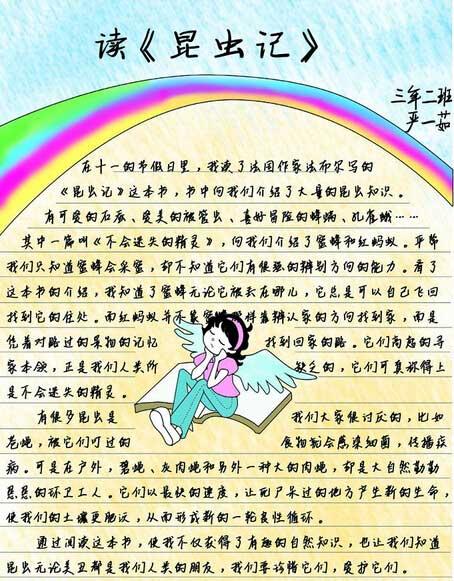 读《昆虫记》
三年二班
严一茹
在十一的节假日里，我读了法国作家法布尔写的
《昆虫记》这本书，书中向我们介绍了大量的昆虫知识。
有可爱的石蚕、爱美的被管虫、喜好冒险的蟀螨、孔雀蛾……
其中一篇叫《不会迷失的精灵》，向我们介绍了蜜蜂和红蚂蚁。平常
我们只知道蜜蜂会采蜜，却不知道它们有很强的辨别方向的能力。看了
这本书的介绍，我知道了蜜蜂无论它被丢在哪儿，它总是可以自己飞回
找到它的住处。而红蚂蚁并不蜜蜂那样靠辨认家的方向找到家，而是
凭着对路过的景物的记忆 找到回家的路。它们高超的寻
家本领，正是我们人类所 缺乏的，它们可真称得上
是不会迷失的精灵。
有很多昆虫是 我们大家很讨厌的，比如
苍蝇，被它们叮过的 食物就会感染细菌，传播疾
病。可是在户外，碧蝇、灰肉蝇和另外一种大的肉蝇，却是大自然勤勤
恳恳的环卫工人。它们以最快的速度，让死尸呆过的地方产生新的生命，
使我们的土壤更肥沃，从而形成新的一轮良性循环。
通过阅读这本书，使我不仅获得了有趣的自然知识，也让我们知道
昆虫无论美丑都是我们人类的朋友，我们要珍惜它们，爱护它们。